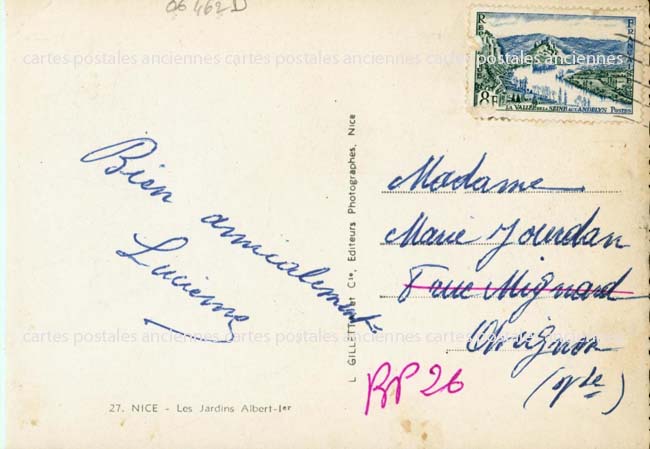 06 462 D
REPUBLIQUE FRANCAISE
8F
LA VALLEE DE LA SEINE AUX ANDELYS POSTES
cartes postales anciennes cartes postales anciennes cartes postales anciennes
Bien amicalement
Lucienne
L GILLETTA et Cie, Editeurs Photographes, Nice
Madame
Marie Jourdan
7 rue Mignard
Avignon
(Vcle)
BP 26
cartes postales anciennes cartes postales anciennes cartes postales anciennes
27. NICE - Les Jardins Albert-Ier